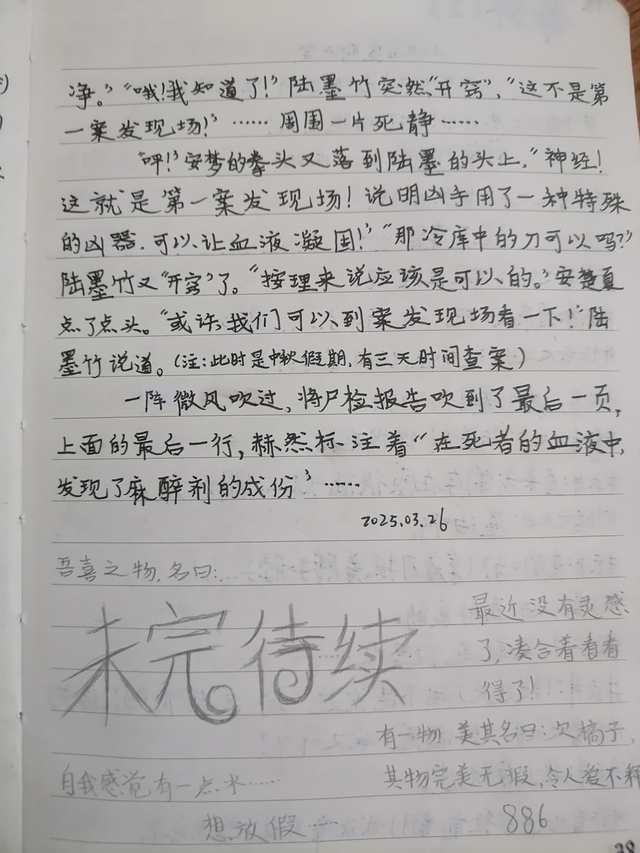 净。”“哦!我知道了!”陆墨竹突然“开窍”,“这不是第
一案发现场!”……周围一片死静……
“呯!”安梦的拳头又落到陆墨的头上,“神经!
这就是第一案发现场!说明凶手用了一种特殊
的凶器,可以让血液凝固!”“那冷库中的刀可以吗?”
陆墨竹又“开窍”了。“按理来说应该是可以的。”安楚夏
点了点头。“或许,我们可以到案发现场看一下!”陆
墨竹说道。(注:此时是中秋假期,有三天时间查案)
一阵微风吹过,将尸检报告吹到了最后一页,
上面的最后一行,赫然标注着“在死者的血液中,
发现了麻醉剂的成份”……
2025.03.26
吾喜之物,名曰:……
未完待续
最近没有灵感
了,凑合着看看
得了!
有一物,美其名曰:欠揍子,
其物完美无瑕,令人爱不释
自我感觉有一点水……
想放假……
886
38